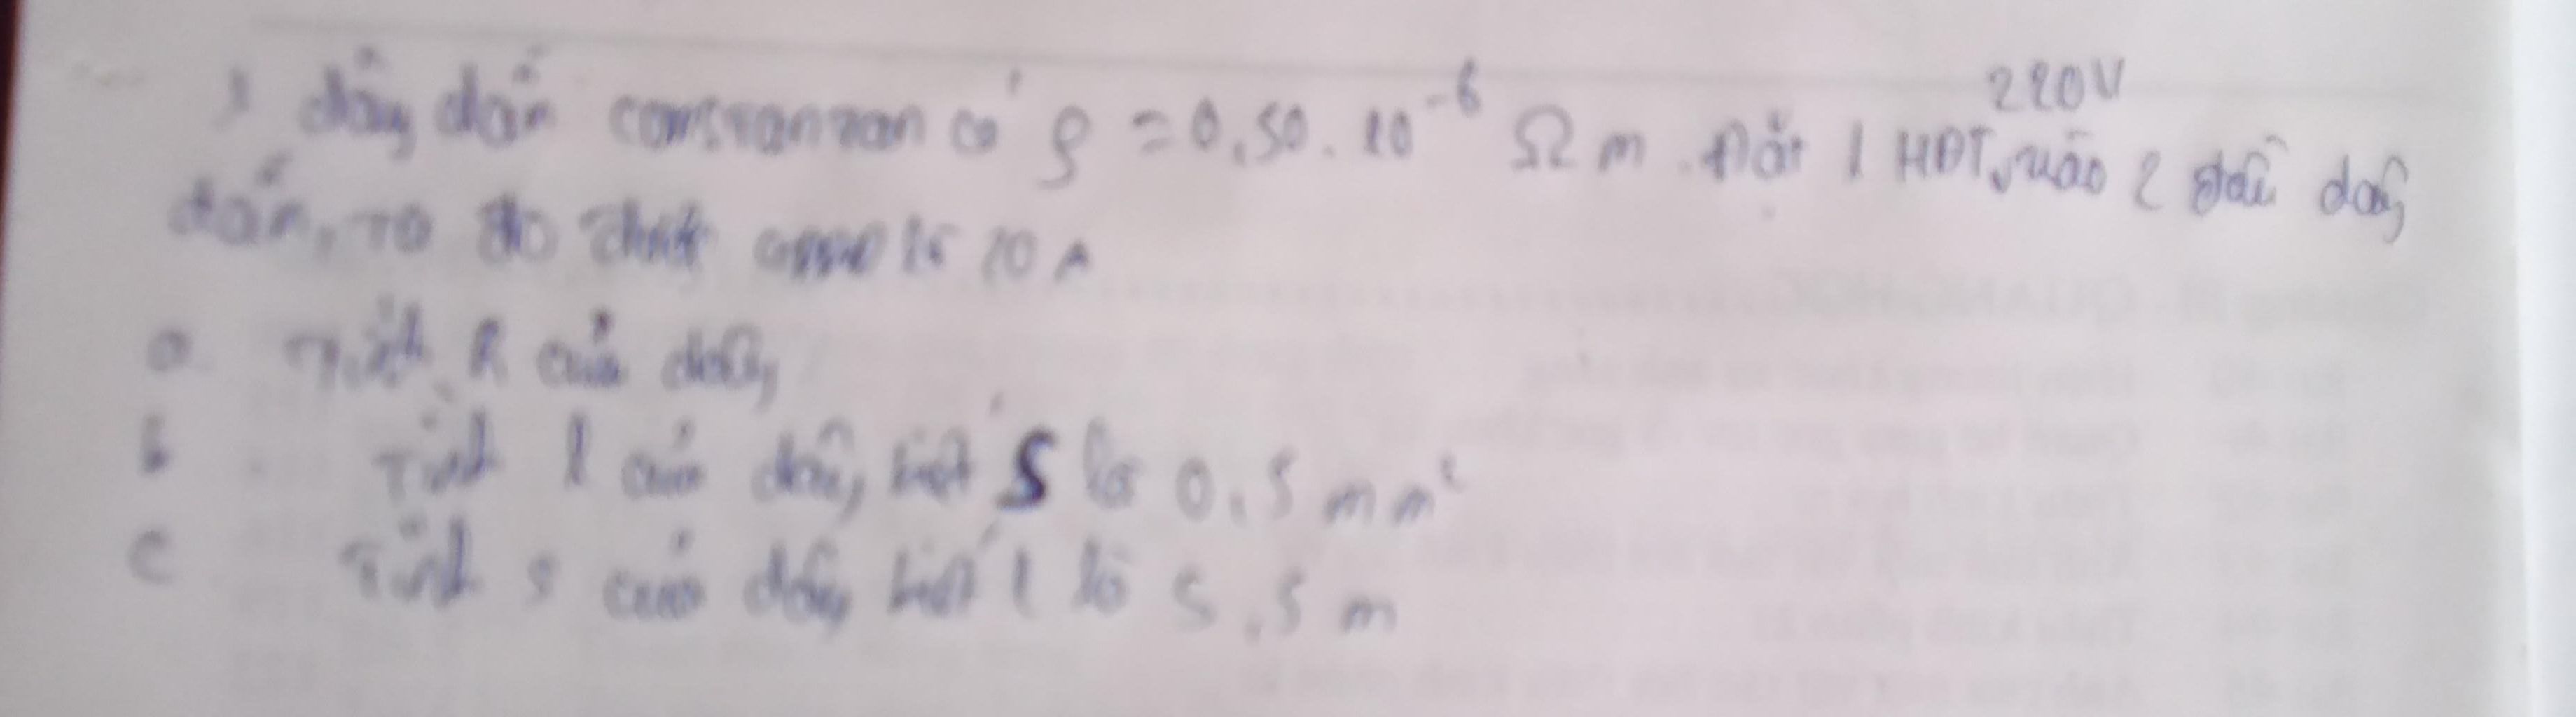 1 dây dẫn constantan có ρ = 0,50. 10⁻⁶ Ω m. Đặt 1 HĐT 220V vào 2 đầu dây
dẫn, ta đo được là 10 A
a Tính R của dây
b Tính l của dây biết S là 0,5 mm²
c Tính s của dây biết l là 5,5 m